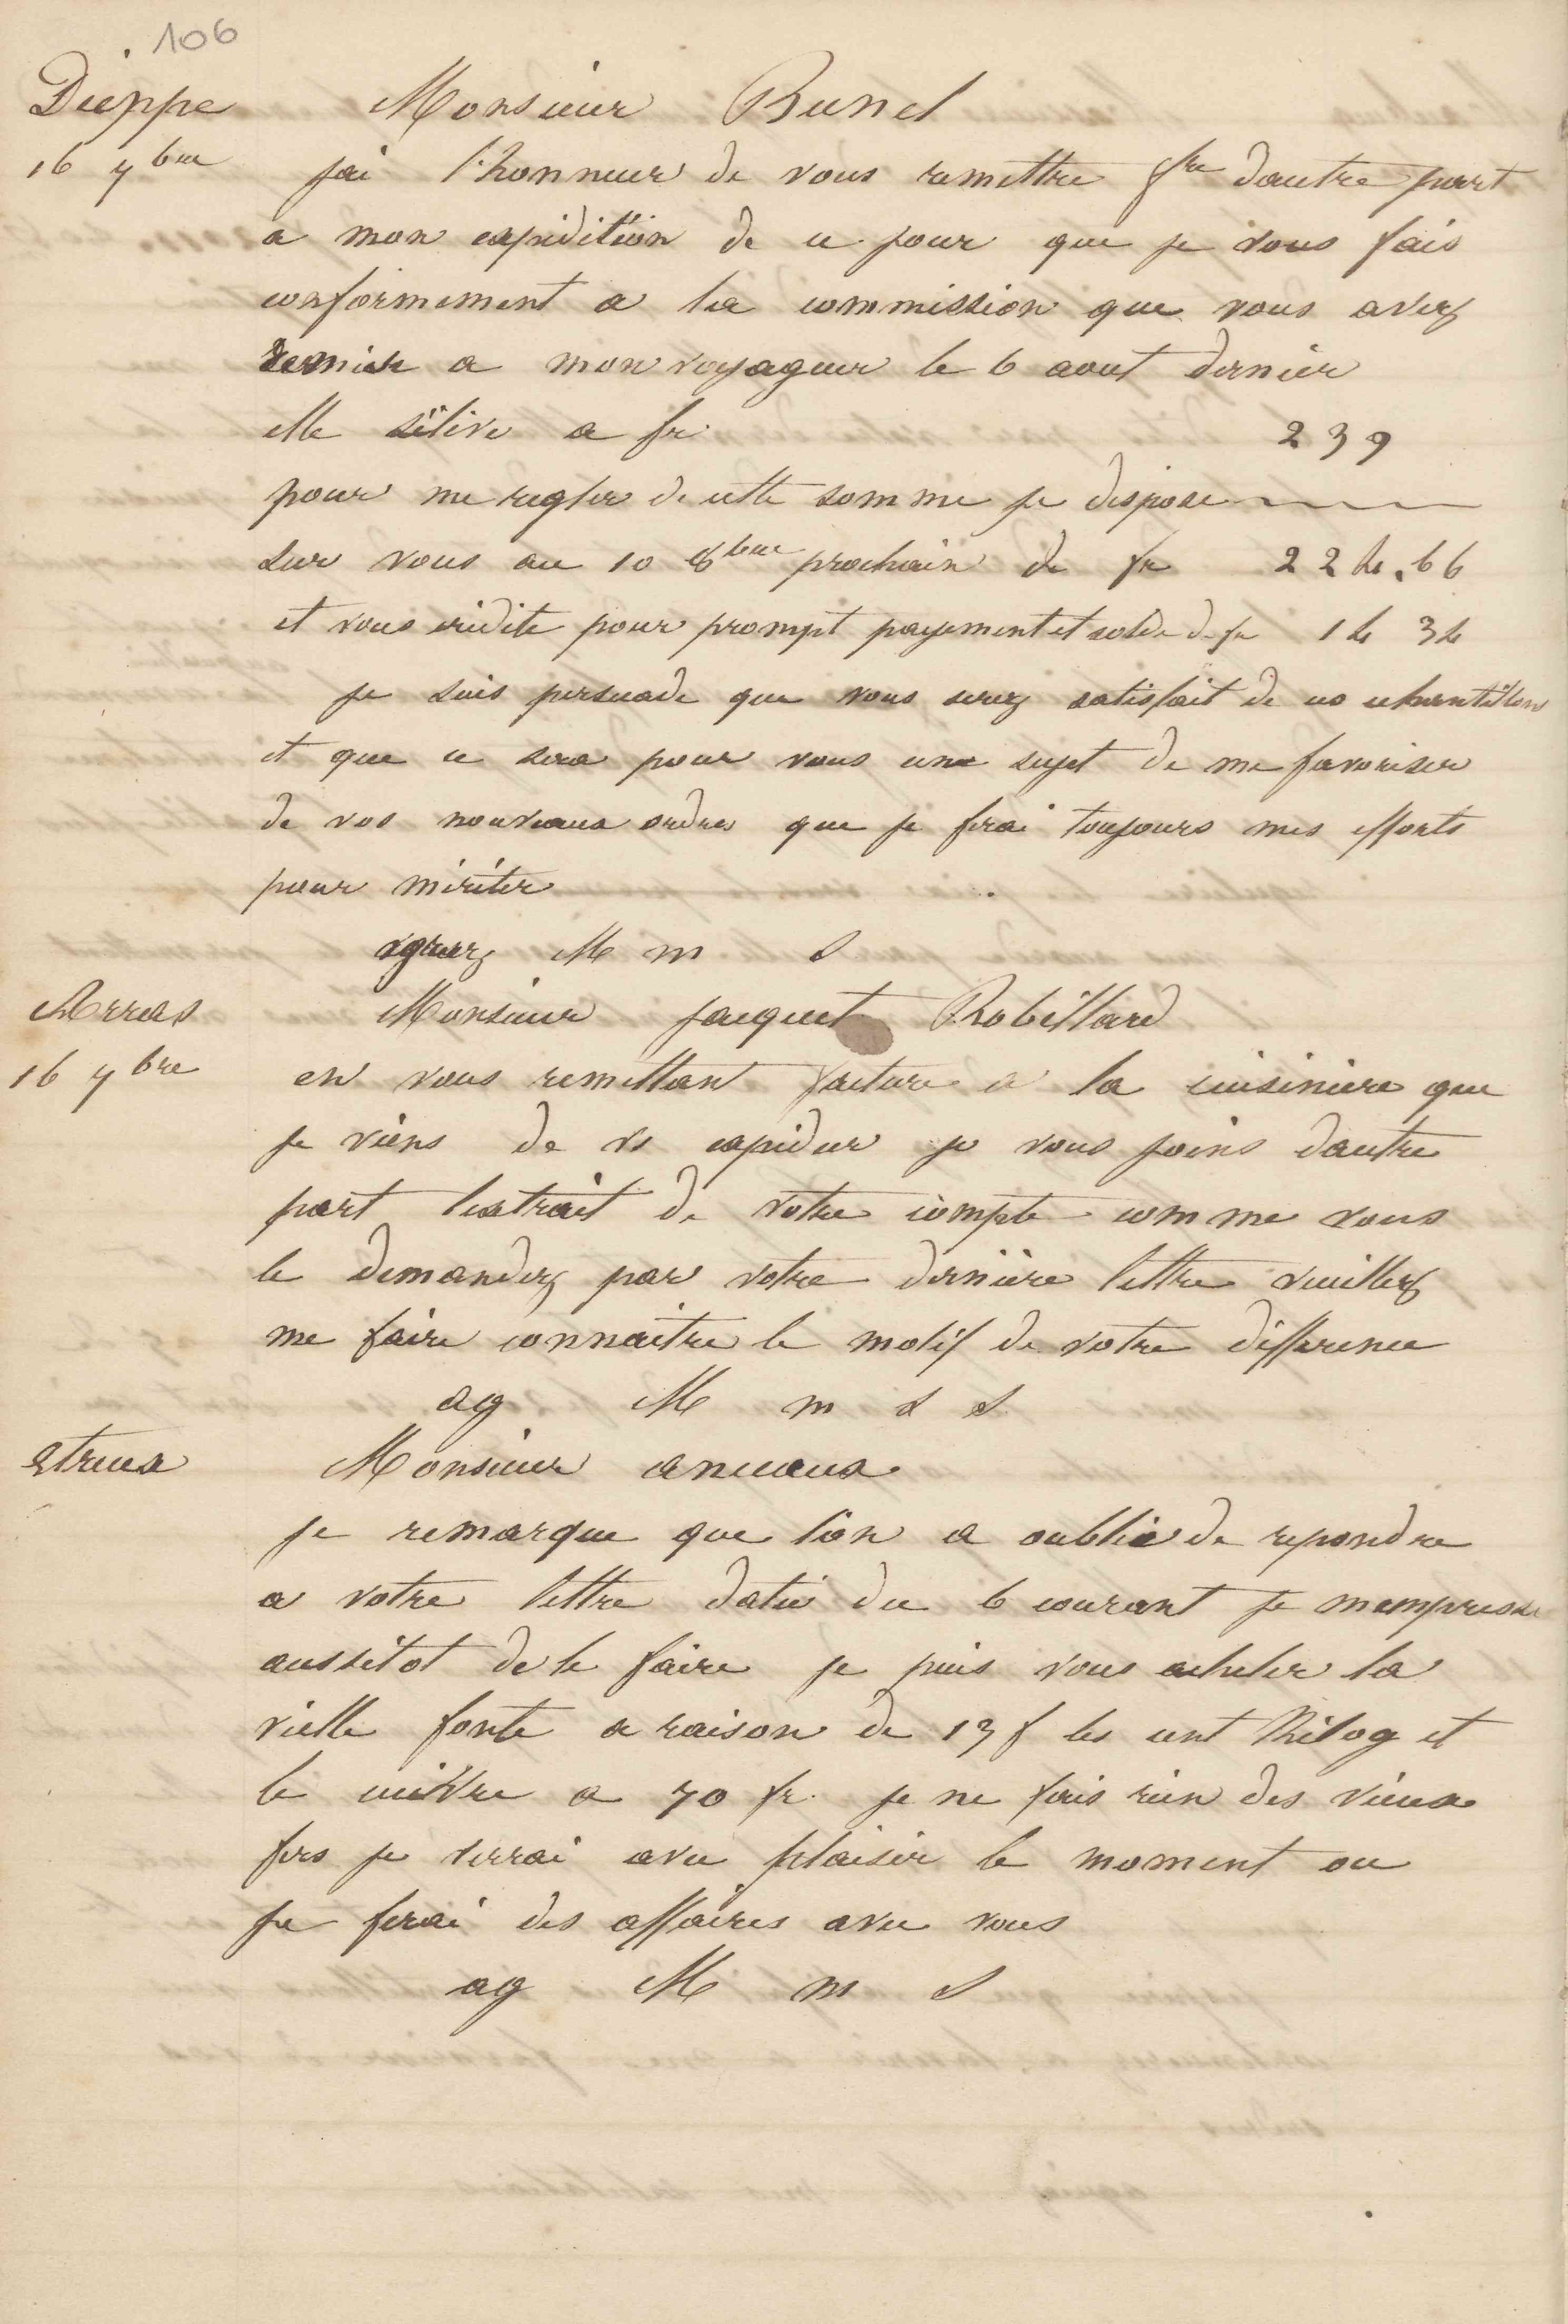 106
Dieppe Monsieur Bunel
16 7bre jai l'honneur de vous remettre fre dautre part
a mon expédition de ce jour que je vous fais
conformement a la commission que vous avez
remise a mon voyageur le 6 aout dernier
elle sélève a fr. 239
pour me regler de cette somme je dispose
sur vous au 10 8bre prochain de fr 224.66
et vous crédite pour prompt payement et solde de fr 14 34
je suis persuade que vous serez satisfait de ces echantillons
et que ce sera pour vous une sujet de me favoriser
de vos nouveaux ordres que je ferai toujours mes efforts
pour mériter
agreez M m S
Arras Monsieur jacquet Robillard
16 7bre en vous remettan facture a la cuisiniere que
je viens de vs expedier je vous joins dautre
part lextrait de votre compte comme vous
le demandez par votre dernière lettre veuillez
me faire connaitre le motif de votre difference
ag M m s S
etreux Monsieur anceaux
je remarque que l'on a oublié de repondre
a votre lettre datée du 6 courant je mempresse
aussitot de le faire je puis vous acheter la
vielle fonte a raison de 13 f les cent Kilog et
le cuivre a 70 fr. je ne fais rien des vieux
fers je verrai avec plaisir le moment ou
je ferai des affaires avec vous
ag M m S